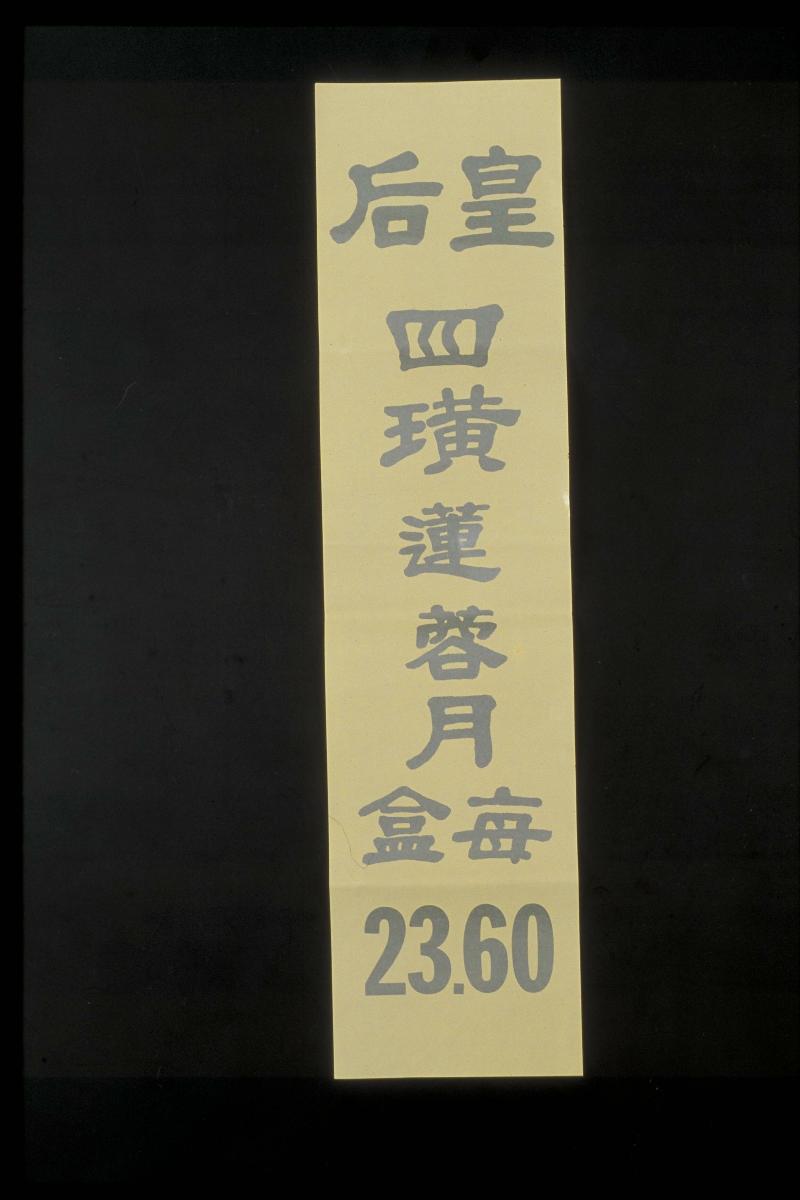 皇后
四璜蓮蓉月
每盒
23.60